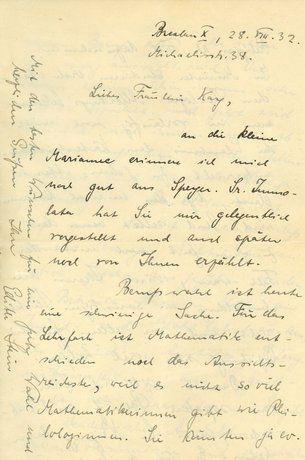 Breslau X, 28. VIII. 32.
Michaelisstr. 38.
Liebes Fräulein Kay,
an die kleine
Marianne erinnere ich mich
noch gut aus Speyer. Sr. Immo-
lata hat Sie mir gelegentlich
vorgestellt und auch später
noch von Ihnen erzählt.
Berufswahl ist heute
eine schwierige Sache. Für das
Lehrfach ist Mathematik ent-
schieden noch das Aussichts-
reichste, weil es nicht so viel
Mathematikerinnen gibt wie Phi-
lologinnen. Sie könnten ja ev.
Mit den besten Wünschen für eine gute Wahl und
herzlichen Grüßen Ihre Edith Stein